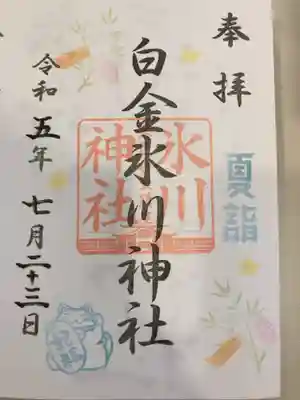 奉拝
夏詣
白金氷川神社
氷川
神社
令和五年七月二十三日